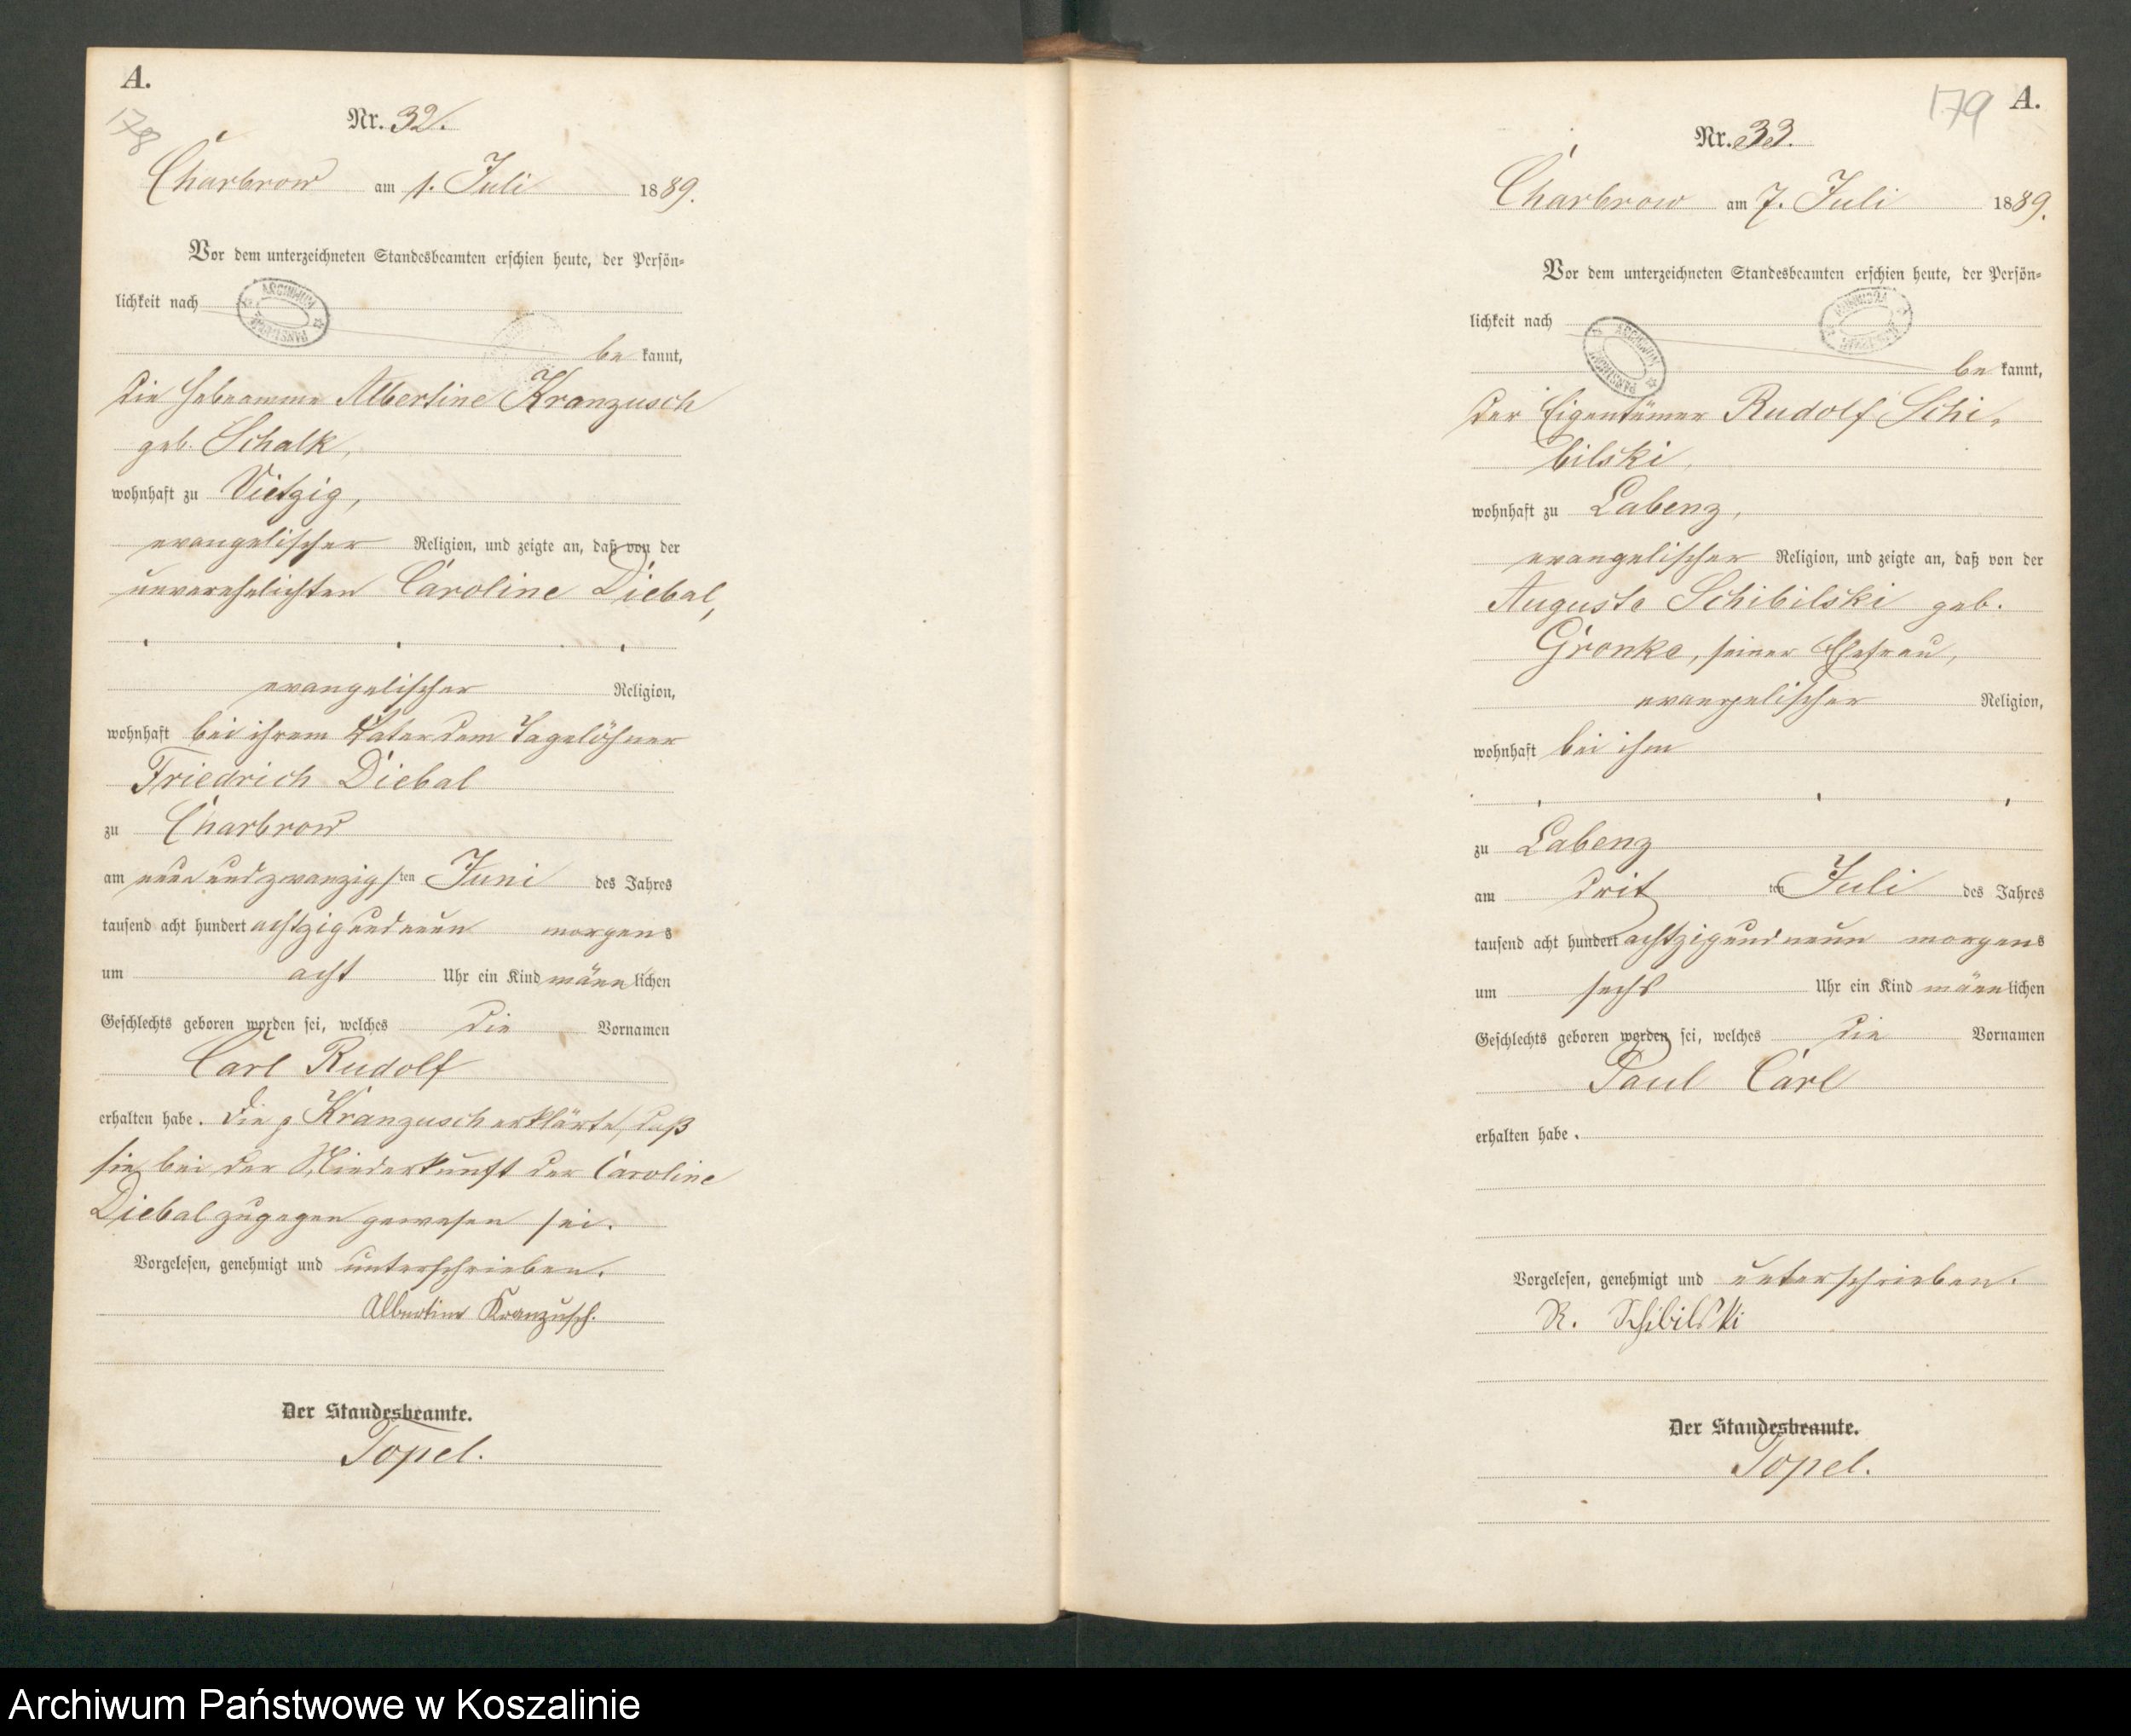 A.
178
Nr. 32.
Charbrow am 1. Juli 1889.
Vor dem unterzeichneten Standesbeamten erschien heute, der Persön-
lichkeit nach
ARCHIWUM
be kannt,
die Hebeamme Albertine Kranzusch
geb. Schalk,
wohnhaft zu Vietzig,
evangelischer Religion, und zeigte an, daß von der
unverehelichten Caroline Diebal,
evangelischer Religion,
wohnhaft bei ihrem Vater dem Tagelöhner
Friedrich Diebal
zu Charbrow
am neunundzwanzigsten Juni des Jahres
tausend acht hundert achtzig und neun morgens
um acht Uhr ein Kind männlichen
Geschlechts geboren worden sei, welches die Vornamen
Carl Rudolf
erhalten habe. Die p Kranzusch erklärte, daß
sie bei der Niederkunft der Caroline
Diebal zugegen gewesen sei.
Vorgelesen, genehmigt und unterschrieben.
Albertine Kranzusch.
Der Standesbeamte.
Topel.
179 A.
Nr. 33.
Charbrow am 7. Juli 1889.
Vor dem unterzeichneten Standesbeamten erschien heute, der Persön-
lichkeit nach
ARCHIWUM
be kannt,
der Eigentümer Rudolf Schi-
bilski,
wohnhaft zu Labenz,
evangelischer Religion, und zeigte an, daß von der
Auguste Schibilski geb.
Gronke, seiner Ehefrau,
evangelischer Religion,
wohnhaft bei ihm
zu Labenz
am dritten Juli des Jahres
tausend acht hundert achtzig und neun morgens
um sechs Uhr ein Kind männlichen
Geschlechts geboren worden sei, welches die Vornamen
Paul Carl
erhalten habe.
Vorgelesen, genehmigt und unterschrieben.
R. Schibilski
Der Standesbeamte.
Topel.
Archiwum Państwowe w Koszalinie